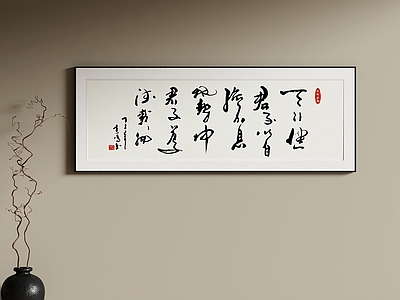 天行健
君子以自
強不息
地勢坤
君子以厚
德載物